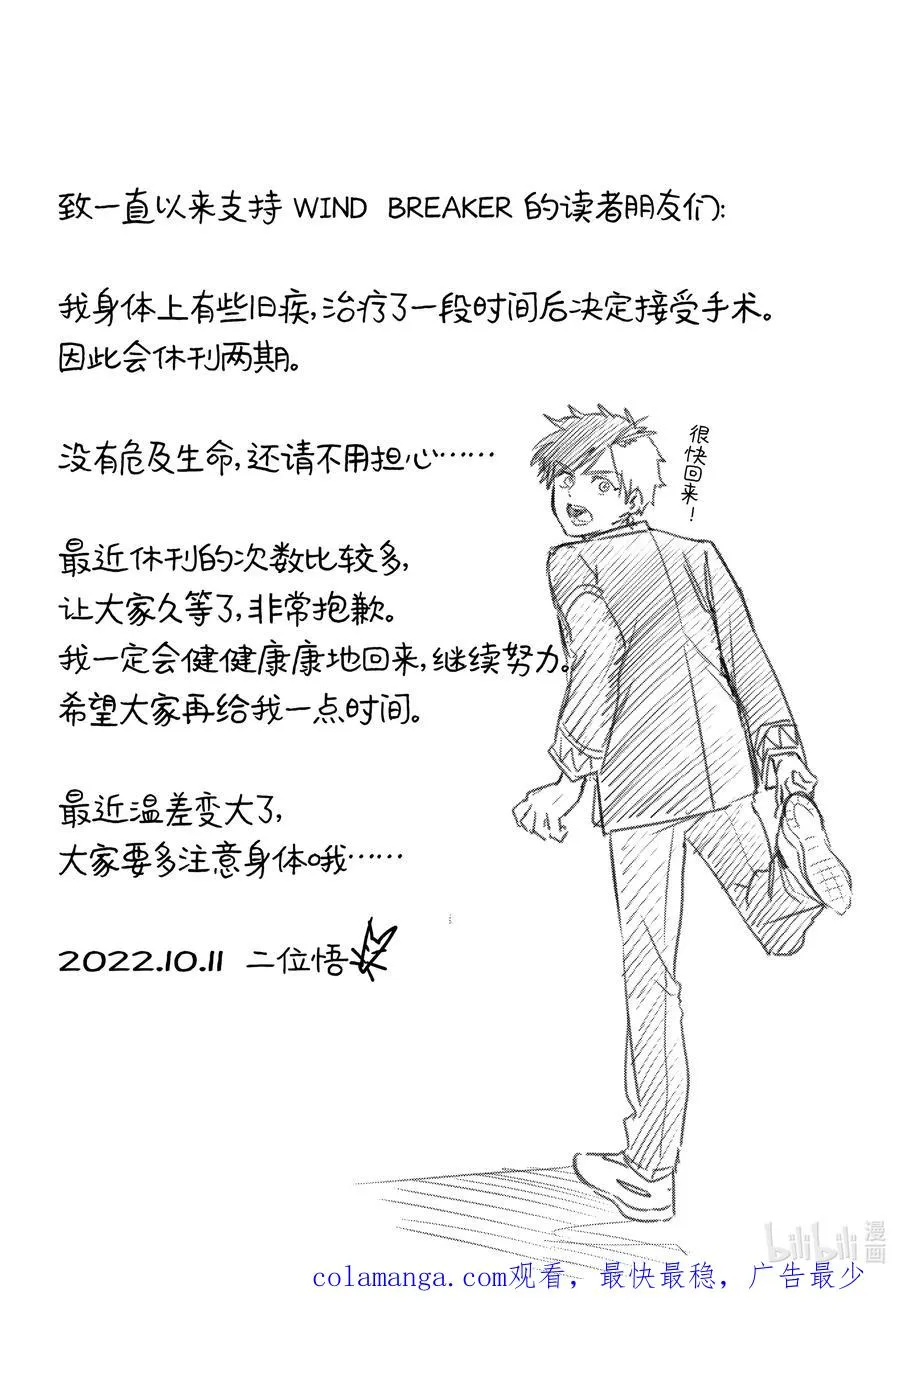 致一直以来支持 WIND BREAKER 的读者朋友们:
我身体上有些旧疾,治疗了一段时间后决定接受手术。
因此会休刊两期。
没有危及生命,还请不用担心……
很快回来!
最近休刊的次数比较多,
让大家久等了,非常抱歉。
我一定会健健康康地回来,继续努力。
希望大家再给我一点时间。
最近温差变大了,
大家要多注意身体哦……
2022.10.11 二位悟
bilibili 漫画
colamanga.com观看，最快最稳，广告最少